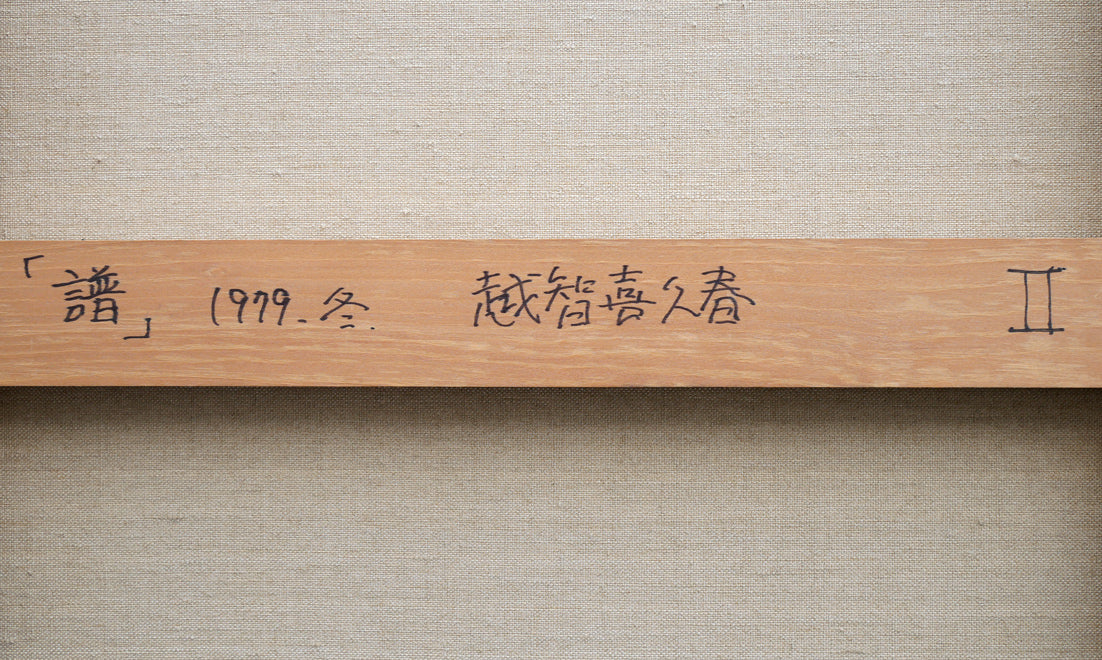 「譜」 1979.冬. 越智喜久春 II